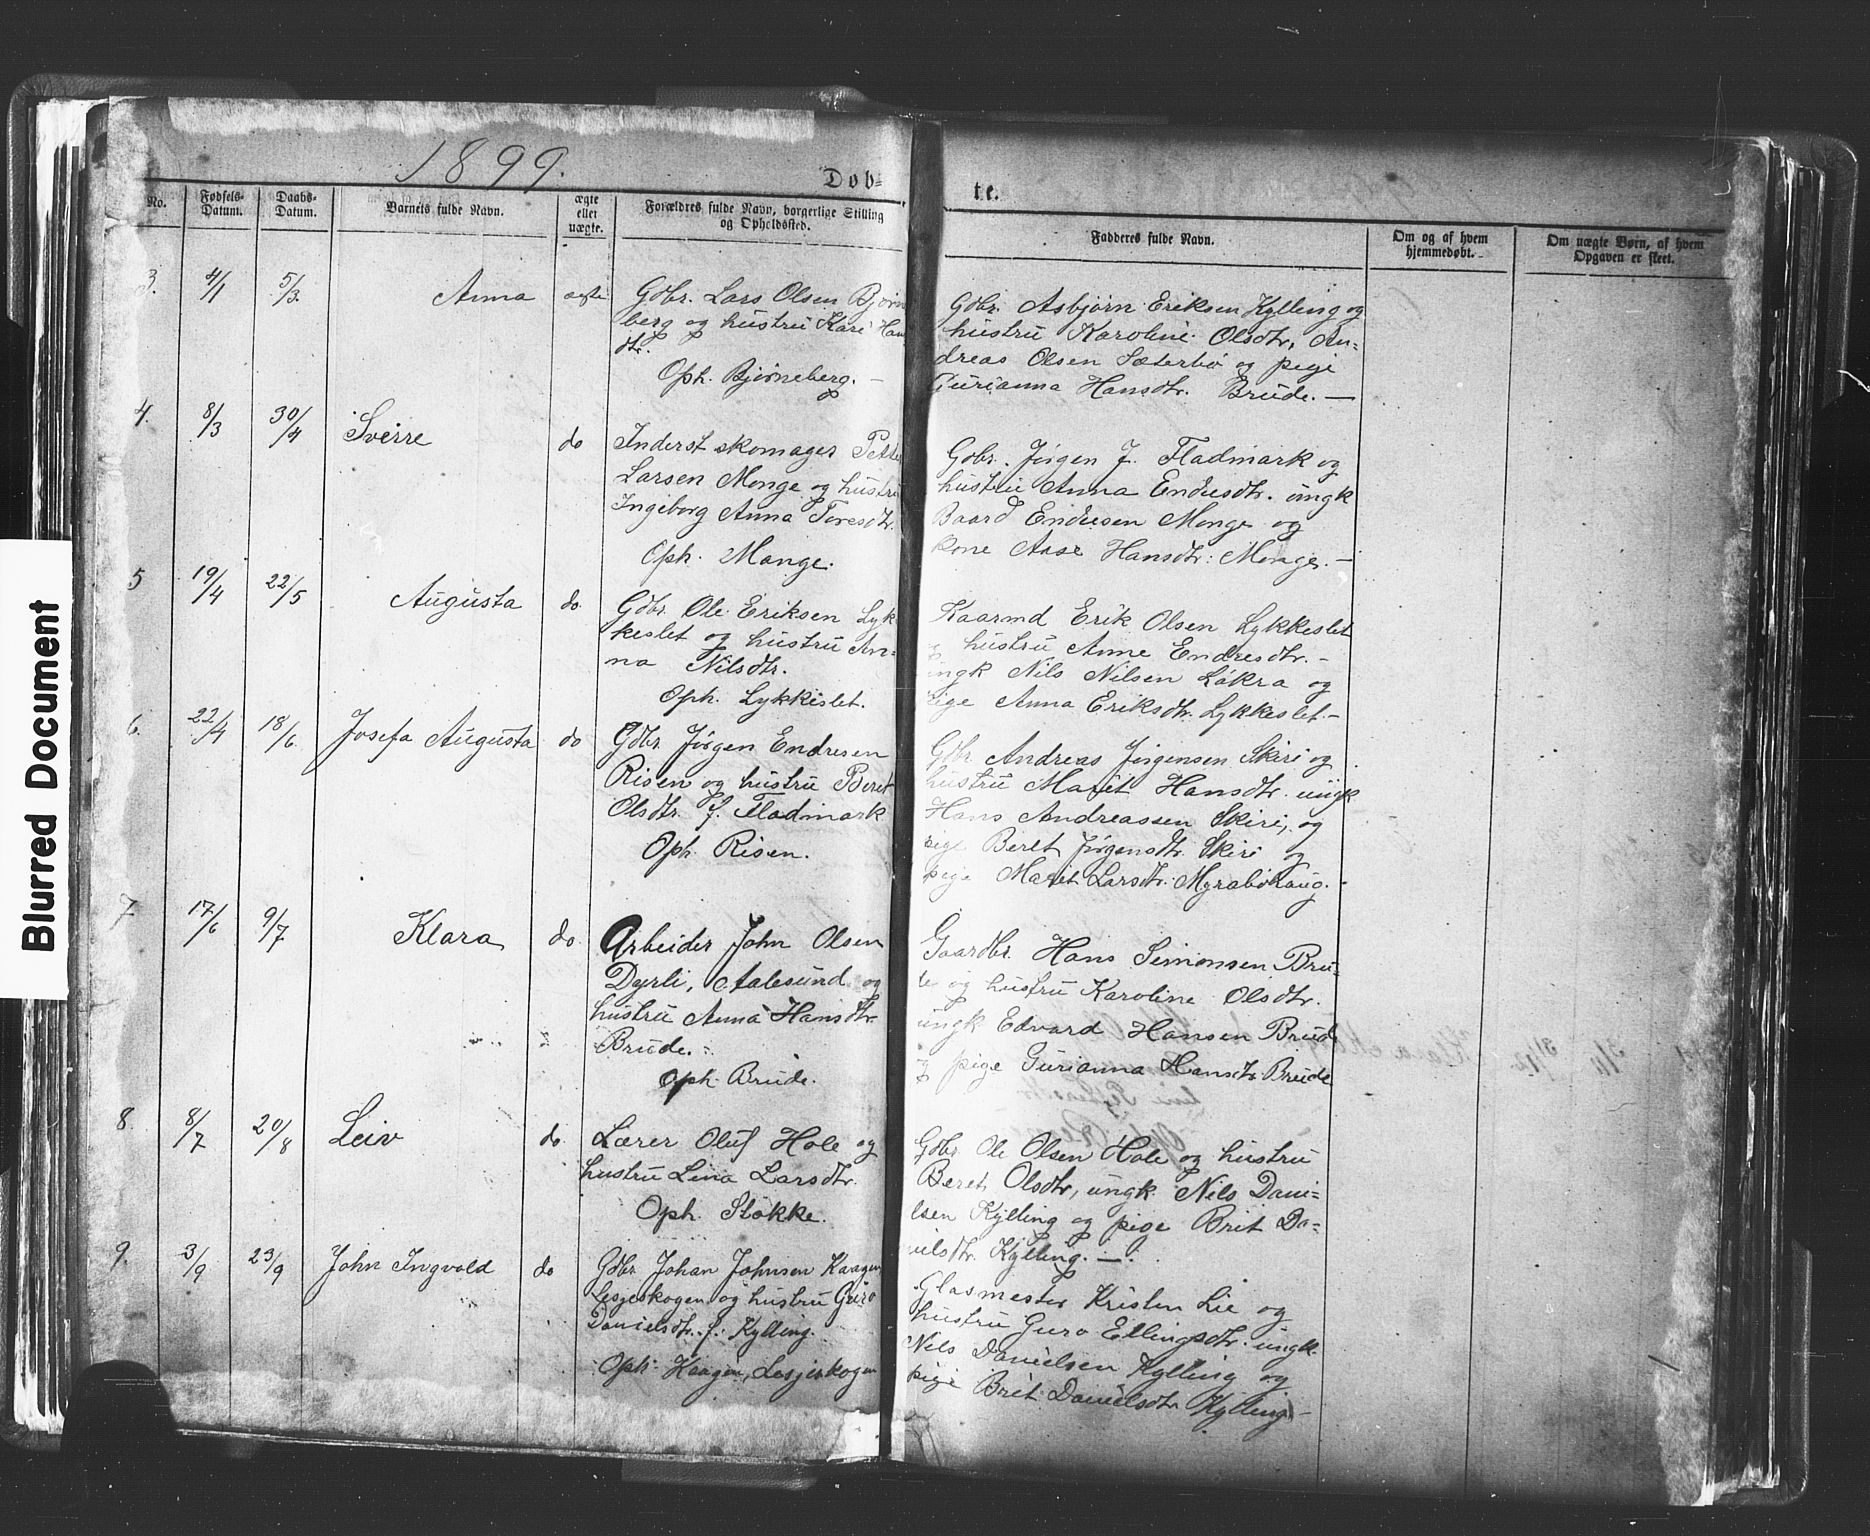 1899.
Døb=
te.
No.
Fødsels-
Datum.
Daabs-
Datum.
Barnets fulde Navn.
ægte
eller
uægte.
Forældres fulde Navn, borgerlige Stilling
og Opholdssted.
Fadderes fulde Navn.
Om og af hvem
hjemmedøbt.
Om uægte Børn, af hvem
Opgaven er skeet.
3. 4/1 5/3. Anna ægte
Gdbr. Lars Olsen Bjørne
berg og hustru Kari Hans
dtr.
Oph. Bjørneberg. —
Gdbr. Asbjørn Eriksen Kylling og
hustru Karoline Olsdtr, An=
dreas Olsen Sæterbø og pige
Gurianna Hansdtr. Brude. —
4. 8/3 30/4 Sverre do
Inderst skomager Petter
Larsen Monge og hustru
Ingeborg Anna Toresdtr.
Oph. Monge.
Gdbr. Jørgen J. Fladmark og
hustru Anna Endresdtr. ungk
Baard Endresen Monge og
kone Aase Hansdtr. Monge. —
5 19/4 22/5 Augusta do.
Gdbr. Ole Eriksen Lyk
keslet og hustru An=
na Nilsdtr.
Oph. Lykkeslet.
Kaarmd Erik Olsen Lykkeslet
og hustru Anne Endresdtr. -
ungk Nils Nilsen Løkra og
Pige Anna Eriksdtr. Lykkeslet. -
6. 22/4 18/6. Josefa Augusta do
Gdbr. Jørgen Endresen
Risen og hustru Beret
Olsdtr. f. Fladmark
Oph. Risen.
Gdbr Andreas Jørgensen Skiri og
hustru Marit Hansdtr. ungk
Hans Andreassen Skiri, og
pige Beret Jørgensdtr. Skiri og
pige Marit Larsdtr. Myrabøhaug. -
7 17/6 9/7 Klara do.
Arbeider John Olsen
Dyrli, Aalesund og
hustru Anna Hansdtr.
Brude.
Oph. Brude.
Gaardbr. Hans Simonsen Bru=
de og hustru Karoline Olsdtr.
ungk Edvard Hansen Brude
og pige Gurianna Hansdtr. Brude
8. 8/7 20/8 Leiv do.
Lærer Oluf Hole og
hustru Lina Larsdtr.
Oph. Stokke.
Gdbr. Ole Olsen Hole og hustru
Beret Olsdtr, ungk. Nils Dani=
elsen Kylling og pige Brit Da=
nilsdtr. Kylling. —.
9. 3/9 23/9 John Ingvald do
Gdbr. Johan Johnsen Kaagen
Lesjeskogen og hustru Guro
Danielsdtr. f. Kylling.
Oph. Kaagen, Lesjeskogen
Glasmester Kristen Lie og
hustru Guro Ellingsdtr. ungk.
Nils Danielsen Kylling og
pige Brit Danielsdtr Kylling -
Blurred Document